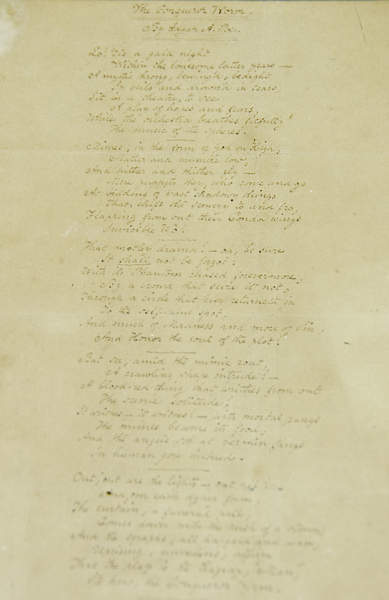 The Conqueror Worm.
By Edgar A. Poe.
Lo! 'tis a gala night
Within the lonesome latter years —
A mystic throng, bewinged, bedight
In veils and drowned in tears,
Sit in a theatre, to see
A play of hopes and fears,
While the orchestra breathes fitfully
The music of the spheres.
Mimes, in the form of God on High,
Mutter and mumble low,
And hither and thither fly —
Mere puppets they, who come and go
At bidding of vast shadowy things
That shift the scenery to and fro,
Flapping from out their Condor wings
Invisible Wo!
That motley drama! — oh, be sure
It shall not be forgot!
With its Phantom chased forevermore,
By a crowd that seize it not,
Through a circle that ever returneth in
To the self-same spot,
And much of Madness and more of Sin
And Horror the soul of the plot!
But see, amid the mimic rout,
A crawling shape intrude! —
A blood-red thing that writhes from out
The scenic solitude!
It writhes — it writhes! — with mortal pangs
The mimes become its food,
And the angels sob at vermin fangs
In human gore imbued.
Out, out are the lights — out all! —
And, over each form
The curtain, a funeral pall,
Comes down with the rush of a storm,
And the angels, all and wan,
Uprising, unveiling, affirm
That the play is the tragedy, "Man,"
Its hero the Conqueror Worm.